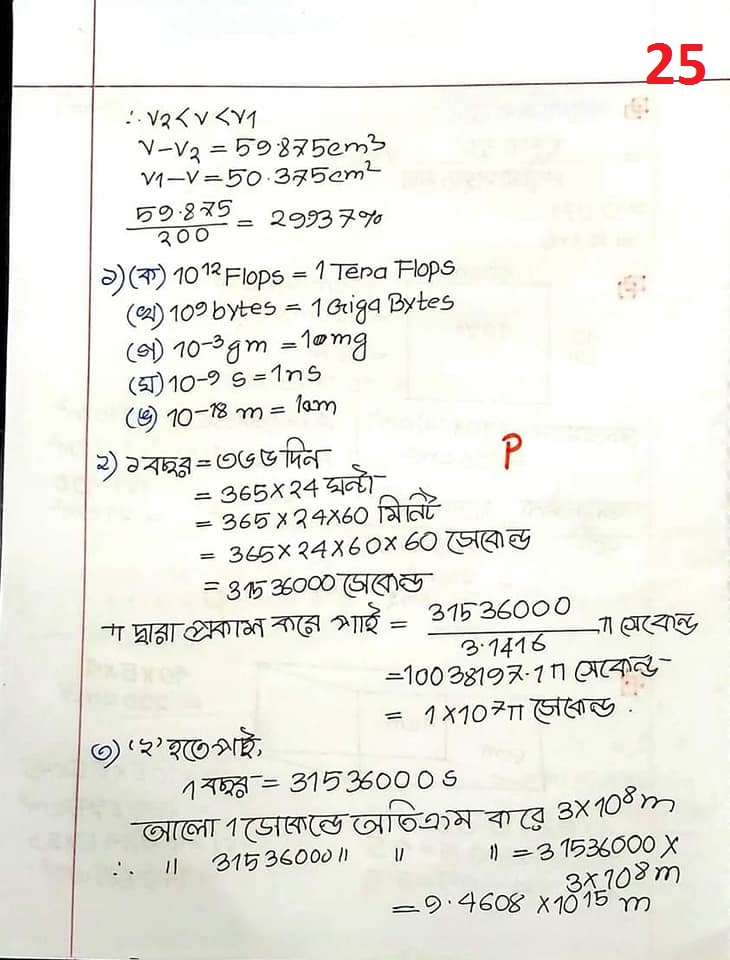 25
∴ v2 < v < v1
v-v2 = 59.875cm3
v1-v = 50.375cm2
59.875/200 = 29937%
১) (ক) 10^12 Flops = 1 Tera Flops
(খ) 10^9 bytes = 1 Giga Bytes
(গ) 10^-3 gm = 1mg
(ঘ) 10^-9 s = 1ns
(ঙ) 10^-18 m = 1am
P
২) ১ বছর = ৩৬৫ দিন
= 365×24 ঘন্টা
= 365×24×60 মিনিট
= 365×24×60×60 সেকেন্ড
= 31536000 সেকেন্ড
π দ্বারা প্রকাশ করে পাই = 31536000/3.1416 π সেকেন্ড
= 10038197.1 π সেকেন্ড
= 1×10^7 π সেকেন্ড.
৩) '২' হতে পাই,
1 বছর = 31536000 s
আলো 1 সেকেন্ডে অতিক্রম করে 3×10^8 m
∴ " 31536000 " " " = 31536000 ×
3×10^8 m
= 9.4608 ×10^15 m